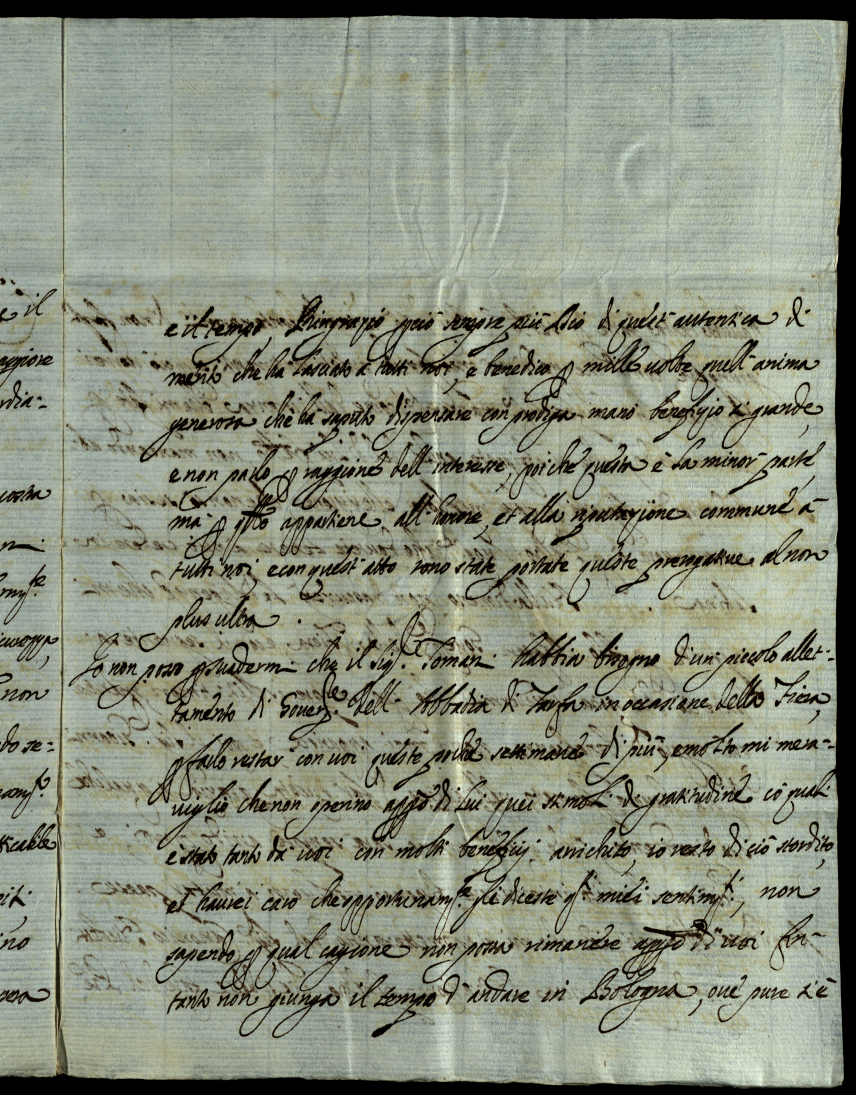 e il tempo, Ringrazio perciò sempre più Dio di quest'autentica di
merito che hà lasciato a tutti noi, e benedico p mille volte quell'anima
generosa che hà saputo dispensare con prodiga mano benefizio si grande,
e non parlo p raggione dell'interesse, poiche questa è la minor parte,
ma p qto appartiene all'honore, et alla riputazione commune à
tutti noi, e con quest'atto sono state portate queste prerogative al non
plus ultra.
Io non posso psuadermi che il Sigr. Tomasi habbia bisogno d'un piccolo allet-
tamento di Goverre. dell'Abbadia di Farfa in occasione della Fiera,
p farlo restar con voi queste poche settimane di più, e molto mi mera-
viglio che non operino appo di lui quei stimoli di gratitudine cō quali
è stato tanto dà voi con molti benefizij arrichito, io resto di ciò stordito,
et haurei caro che opportunamte. gli diceste qti miei sentimti., non
sapendo p qual cagione non possa rimanere di voi fin-
tanto non giunga il tempo d'andare in Bologna, ove pure s'è
e il
aggiore
rdia-
vostra
mte.
non
do se-
amte.
ticabile
ino